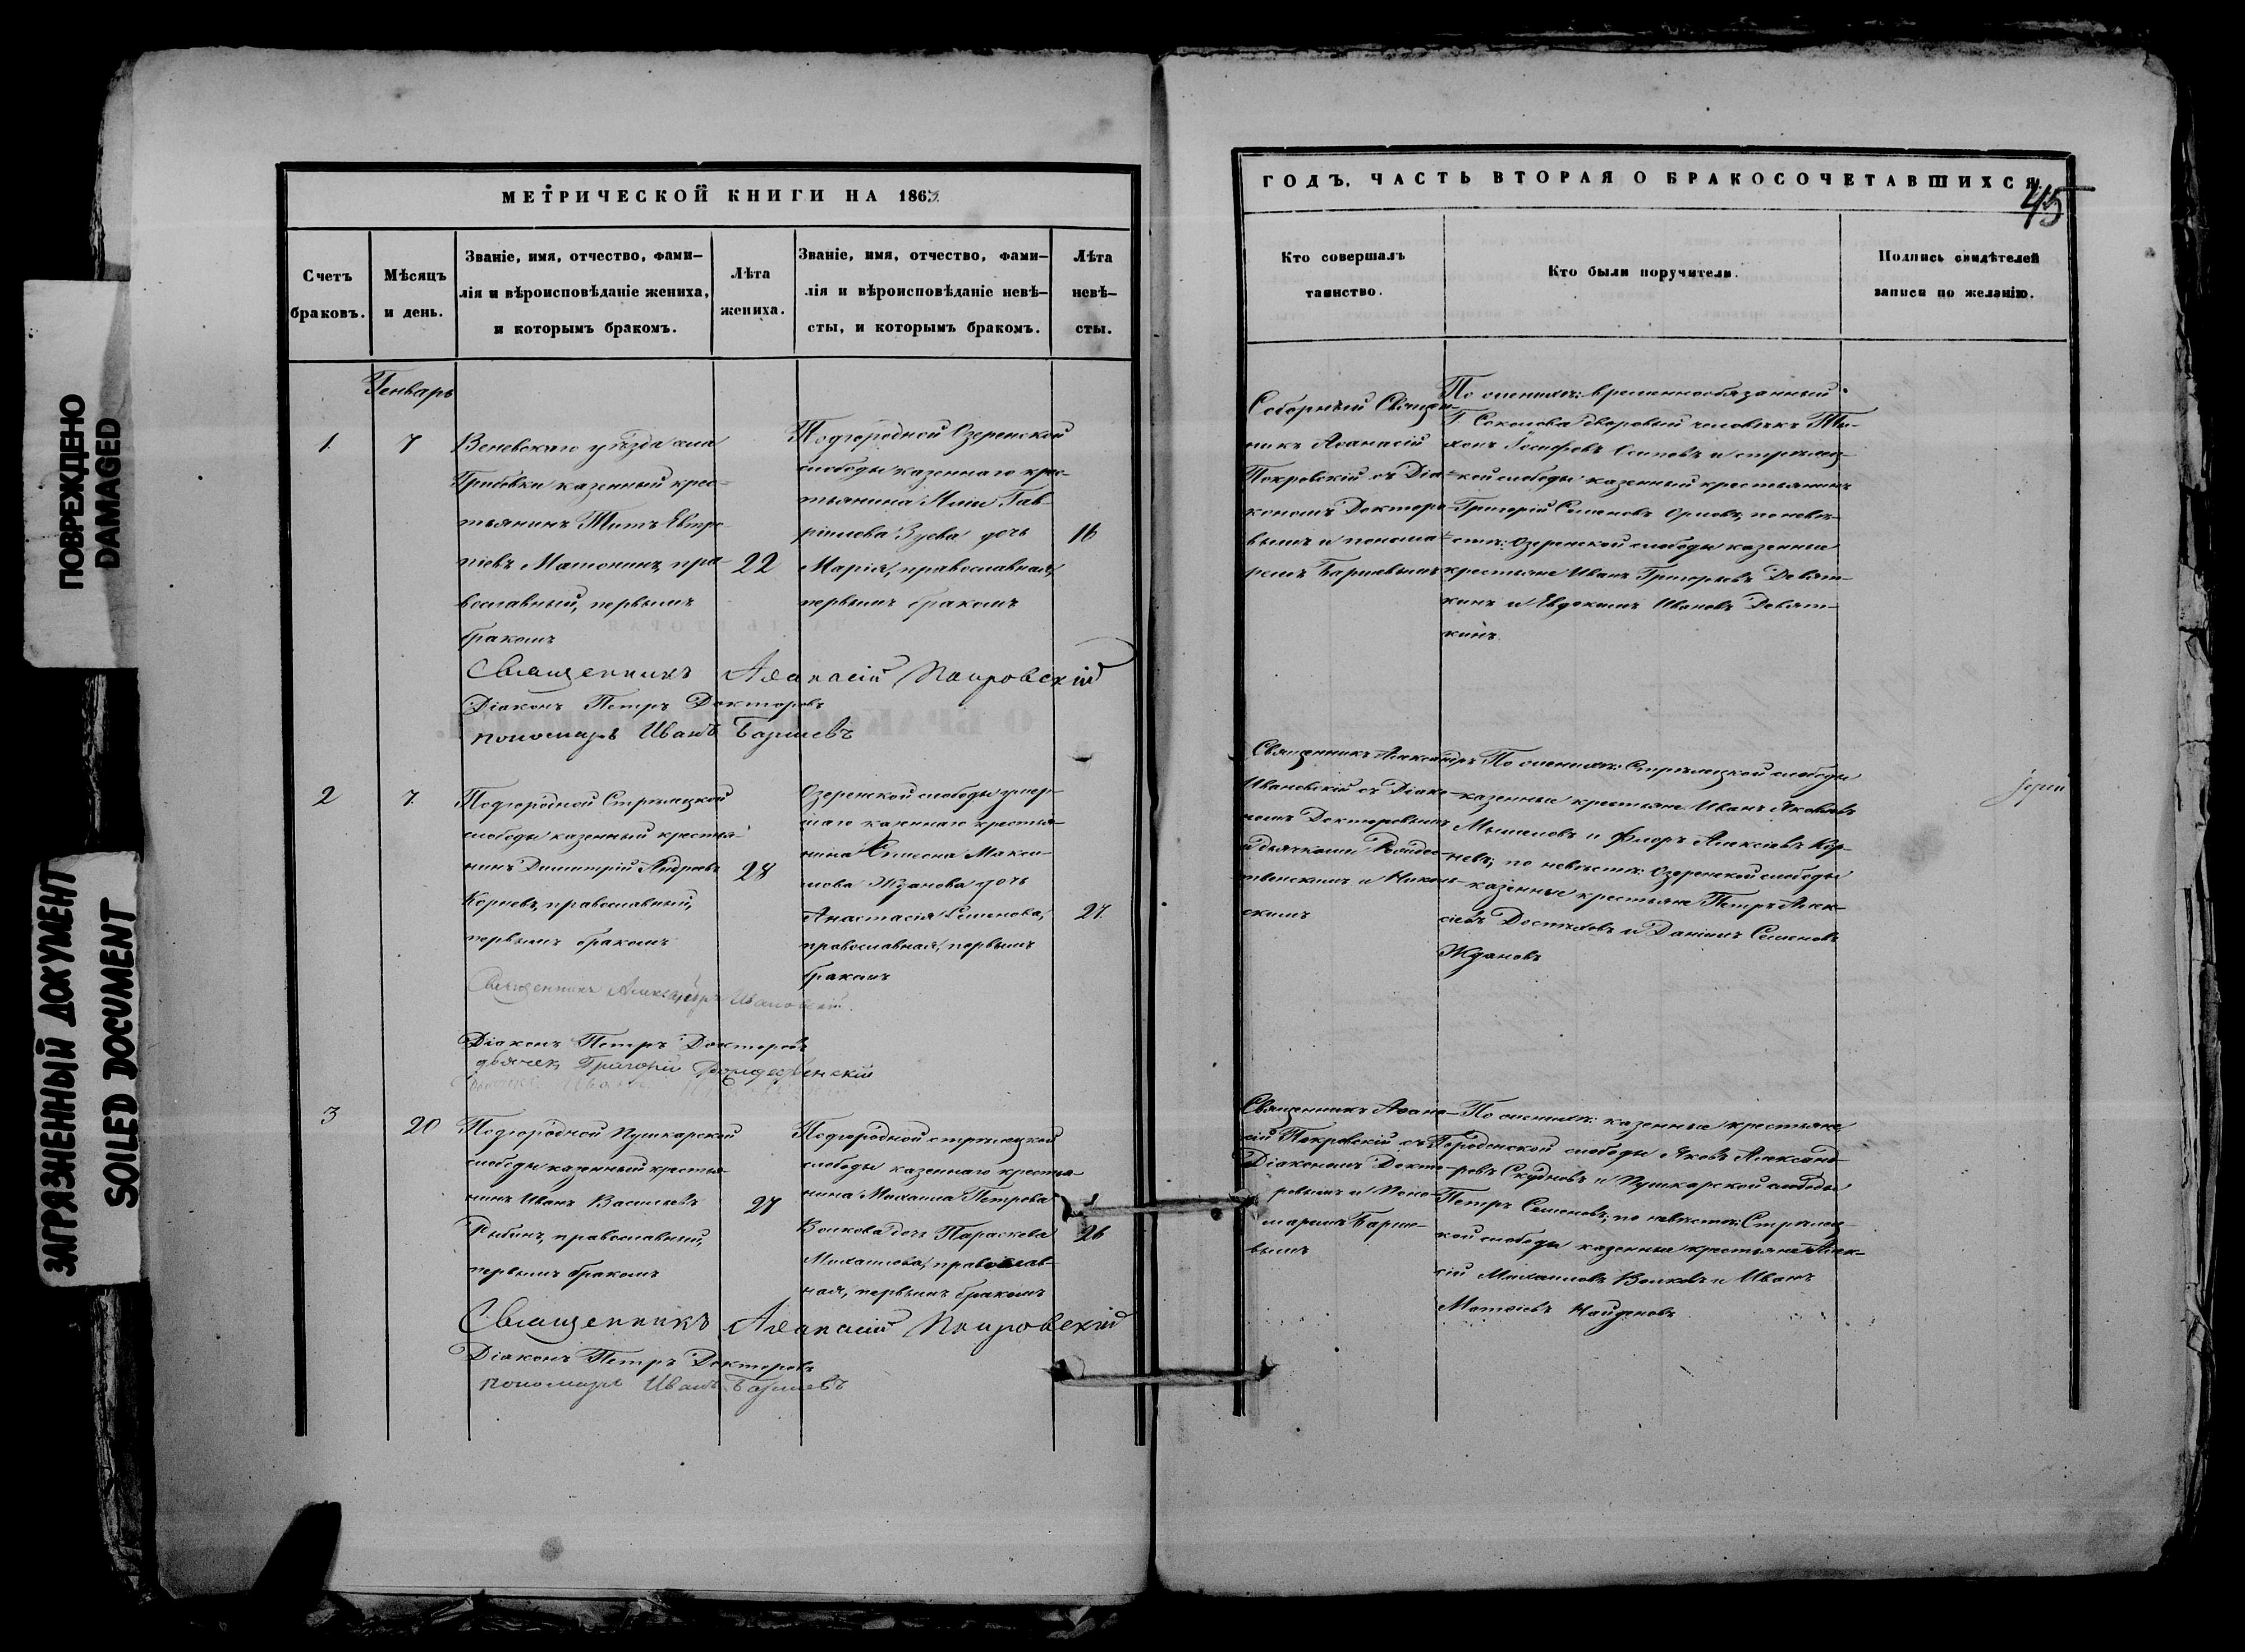 ПОВРЕЖДЕНО
DAMAGED
ЗАГРЯЗНЕННЫЙ ДОКУМЕНТ
SOILED DOCUMENT
МЕТРИЧЕСКОЙ КНИГИ НА 1863
Счетъ
браковъ.
Мѣсяцъ
и день.
Званіе, имя, отчество, фами-
лія и вѣроисповѣданіе жениха,
и которымъ бракомъ.
Лѣта
жениха.
Званіе, имя, отчество, фами-
лія и вѣроисповѣданіе невѣ-
сты, и которымъ бракомъ.
Лѣта
невѣ-
сты.
Генварь
1.
7
Веневскаго уѣзда села
Грибовки казенный крес-
тьянинъ Титъ Евтро-
піевъ Матонинъ, пра-
вославный, первымъ
бракомъ
22
Подгородной Озеренской
слободы казеннаго крес-
тьянина Ильи Гав-
рилова Зуева дочь
Марія, православная,
первымъ бракомъ
16
Священникъ Аѳанасій Покровскій
Діаконъ Петръ Докторовъ
пономарь Иванъ Баршевъ
2
7.
Подгородной Стрѣлецкой
слободы казенный крестья-
нинъ Димитрій Андреевъ
Корневъ, православный,
первымъ бракомъ
28
Озеренской слободы умер-
шаго казеннаго крестья-
нина Симеона Макси-
мова Жданова дочь
Анастасія Семенова,
православная, первымъ
бракомъ
27.
Священникъ Александръ Ивановскій.
Діаконъ Петръ Докторовъ
дьячекъ Григорій Рождественскій
3
20
Подгородной Пушкарской
слободы казенный крестья-
нинъ Иванъ Васильевъ
Рыбинъ, православный,
первымъ бракомъ
27
Подгородной стрѣлецкой
слободы казеннаго крестья-
нина Михаила Петрова
Волкова дочь Параскева
Михаилова, православ-
ная, первымъ бракомъ
26
Священникъ Аѳанасій Покровскій
Діаконъ Петръ Докторовъ
пономарь Иванъ Баршевъ
ГОДЪ. ЧАСТЬ ВТОРАЯ О БРАКОСОЧЕТАВШИХСЯ.
45
Кто совершалъ
таинство.
Кто были поручители.
Подпись свидѣтелей
записи по желанію.
Соборный Священ-
никъ Аѳанасій
Покровскій съ Діа-
кономъ Докторо-
вымъ и понома-
ремъ Баршевымъ
По женихѣ: временнообязанный
Г. Соколова дворовый человѣкъ Ти-
хонъ Іосифовъ Осиповъ и стрѣлец-
кой слободы казенный крестьянинъ
Григорій Семеновъ Орловъ, по невѣ-
стѣ: Озеренской слободы казенные
крестьяне Иванъ Григорьевъ Девят-
кинъ и Евдокимъ Ивановъ Девят-
кинъ.
Священникъ Александръ
Ивановскій съ Діако-
номъ Докторовымъ
и дьячками Рождес-
твенскимъ и Николь-
скимъ
По женихѣ: Стрѣлецкой слободы
казенные крестьяне Иванъ Яковлевъ
и Флоръ Алексіевъ Кор-
невъ; по невѣстѣ: Озеренской слободы
казенные крестьяне Петръ Алек-
сіевъ и Даніилъ Семеновъ
Ждановъ
Священникъ Аѳана-
сій Покровскій съ
Діакономъ Докто-
ровымъ и Поно-
маремъ Барше-
вымъ
По женихѣ: казенные крестьяне
Городенской слободы Яковъ Александ-
ровъ Скудновъ и Пушкарской слободы
Петръ Семеновъ; по невѣстѣ: Стрѣлец-
кой слободы казенные крестьяне Алек-
сій Михаиловъ Волковъ и Иванъ
Матѳіевъ Найденовъ
Іерей